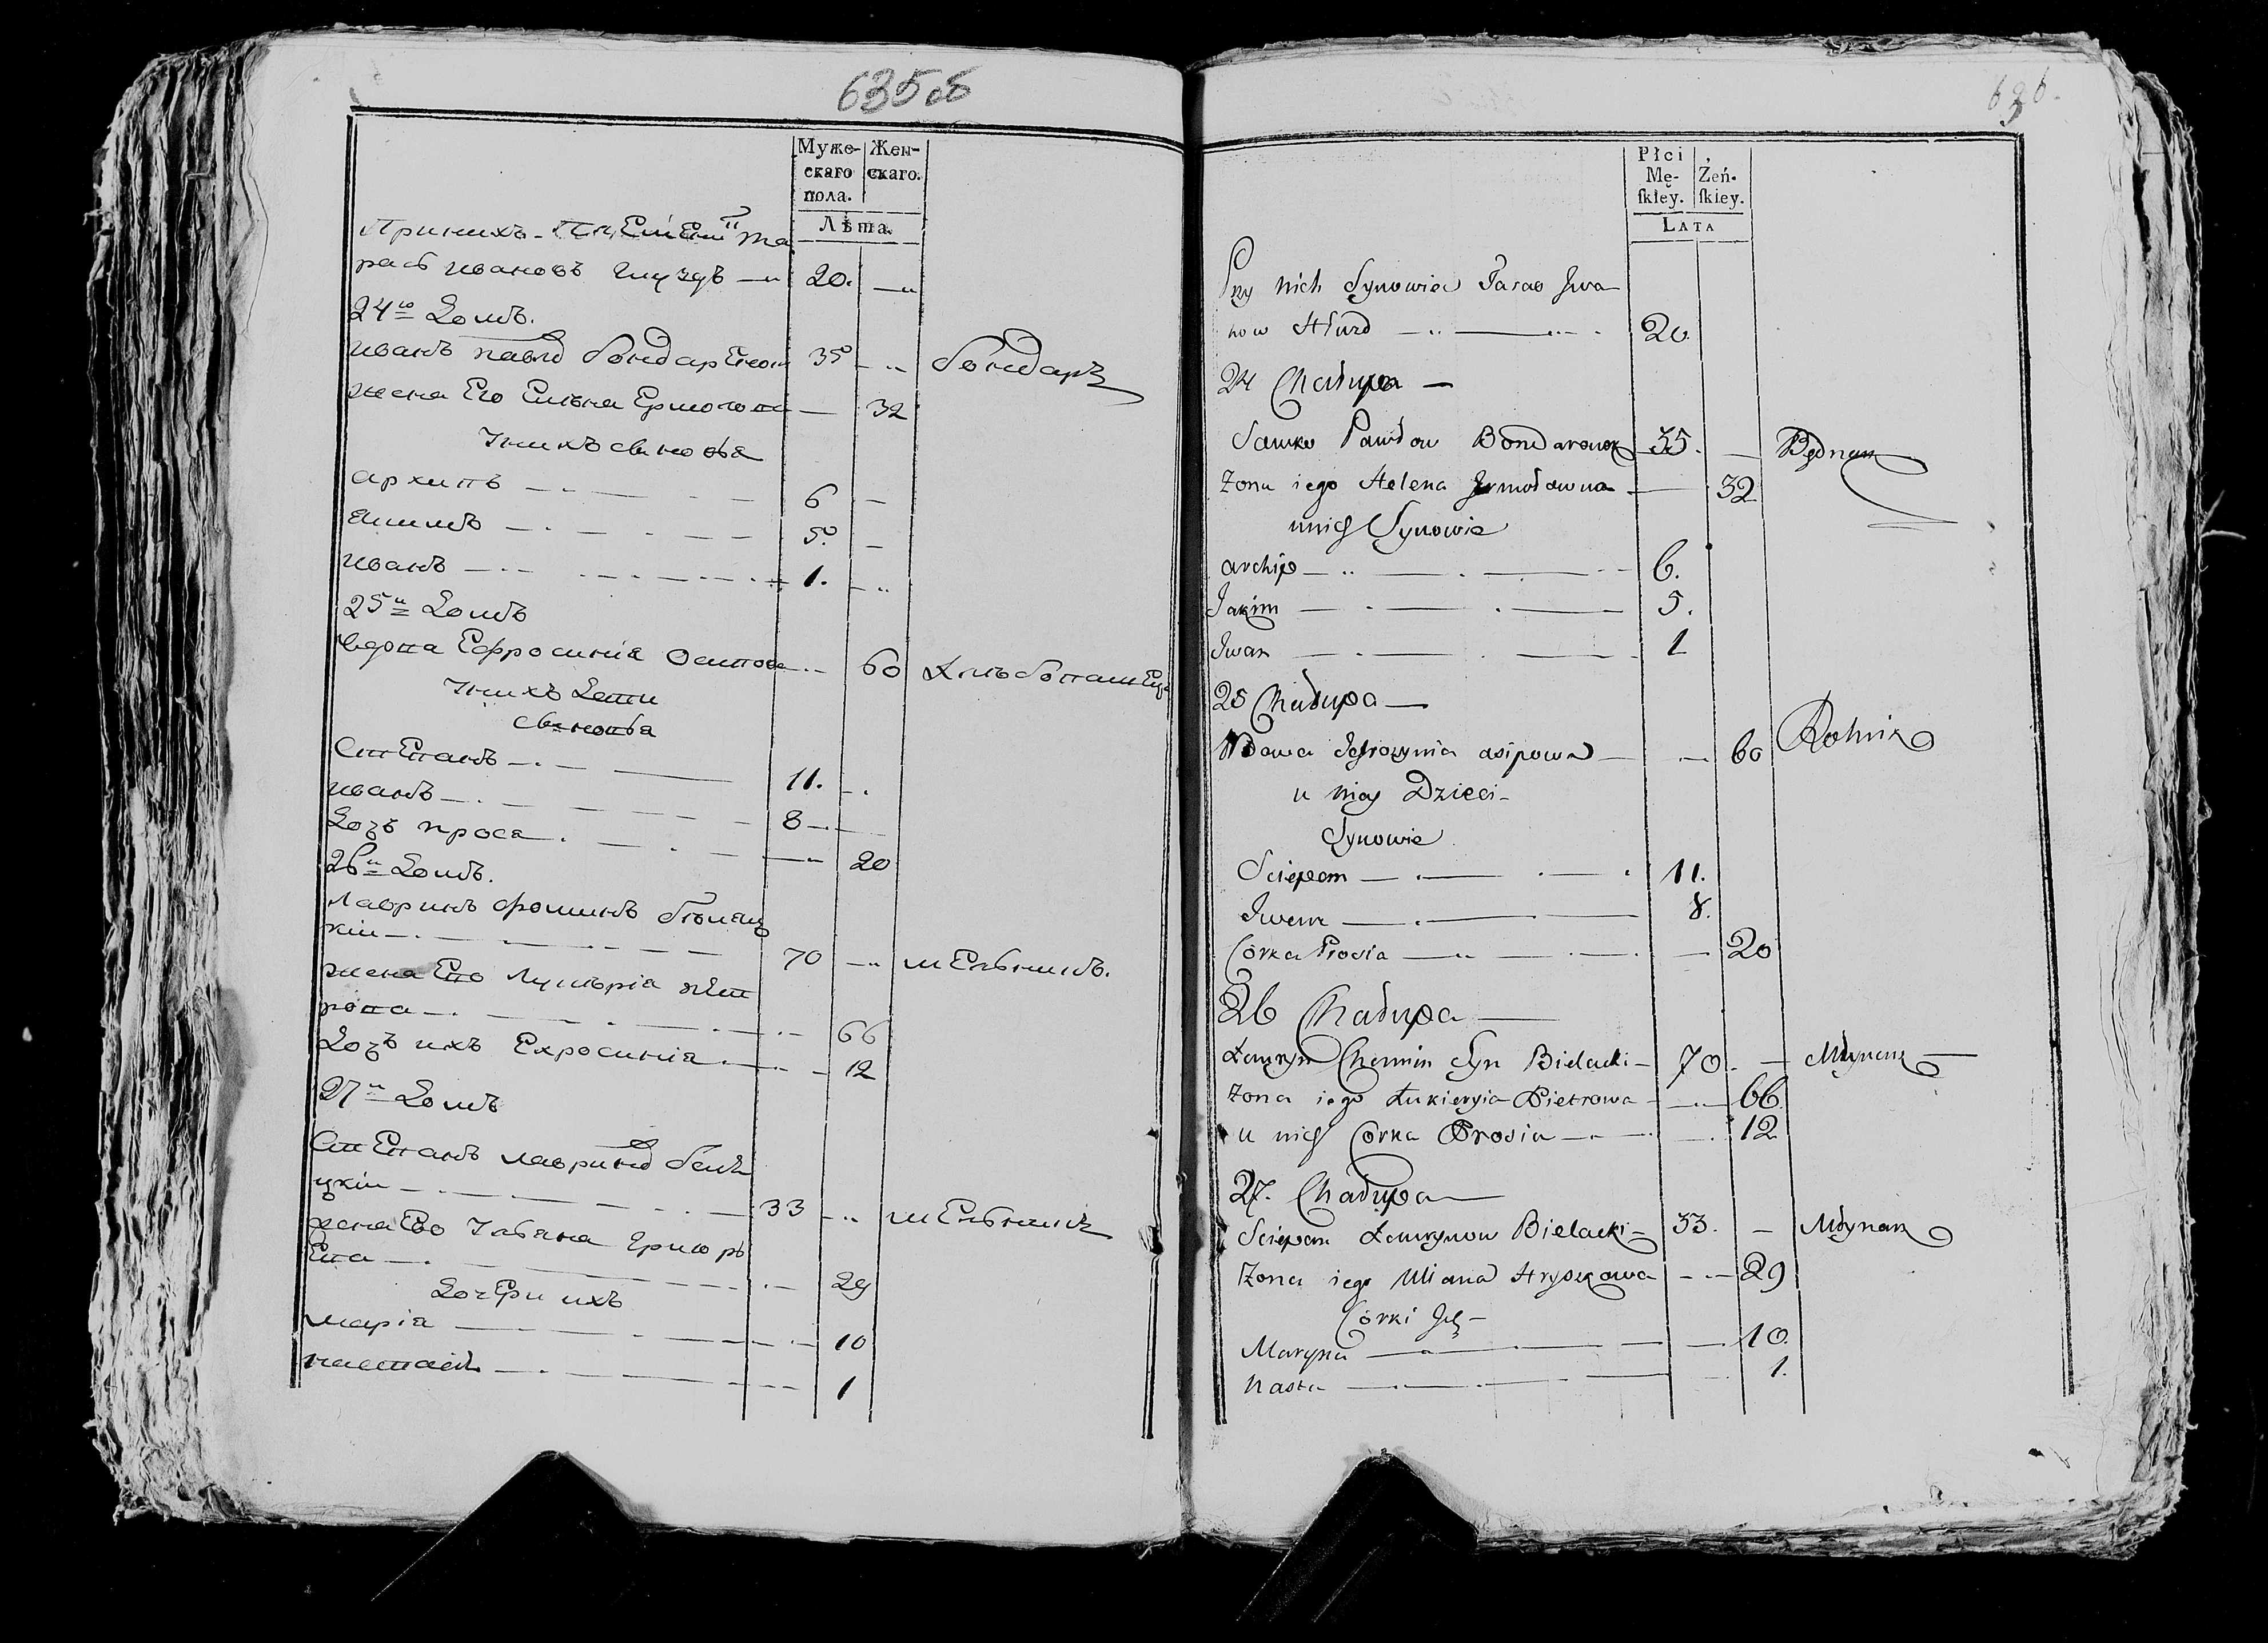 635 об
Муже-
скаго
пола.
Жен-
скаго.
Лѣта.
При нихъ
расъ ивановъ 20.
24го Домъ.
иванъ павло бондарЕнок 35 бондаръ
жена Его Ермолова 32
У нихъ сыновья
архипъ 6
5
иванъ 1.
25й Домъ
вдова Ефросинія Осипова 60 хлѣбопашЕцъ
У нихъ Дети
сыновья
СтЕпанъ 11.
иванъ 8
Дочь прося 20
26й Домъ.
лавринъ фоминъ бѣлец
кій 70 мЕльникъ.
жена Его Лукѣрія пЕт
рова 66
Дочь ихъ Ехросинія 12
27й Домъ
СтЕпанъ лавринов беле
цкій 33 мЕльникъ
жена Ево Ульяна Григорь
Ева 29
ДочЕри ихъ
марія 10
настасія 1
636.
Płci
Mę-
ſkiey.
Żeń-
ſkiey.
LATA
Przy nich Synowie Taras Jwa
now Hłuzd 20.
24 Chałupa
Sawko Pawłow Bondaronok 35. Będnarz
Zona iego Helena Jrmołowna 32
u nich Synowie
archip 6.
Jakim 5.
Jwan 1
25 Chałupa
Wdowa Jefrozynia asipowa 60 Rolnik
u niey Dzieci
Synowie
Sciepan 11.
Jwan 8.
Corka Prosia 20
26 Chałupa
Ławryn Chomin Syn Bielacki 70. Młynarz
Zona iego Łukieryia Pietrowa 66.
u nich Corka Prosia 12
27. Chałupa
Sciepan Ławrynow Bielacki 33. Młynarz
Zona iego Uliana Hryszkowa 29
Corki Jch
Maryna 10.
Nasta 1.